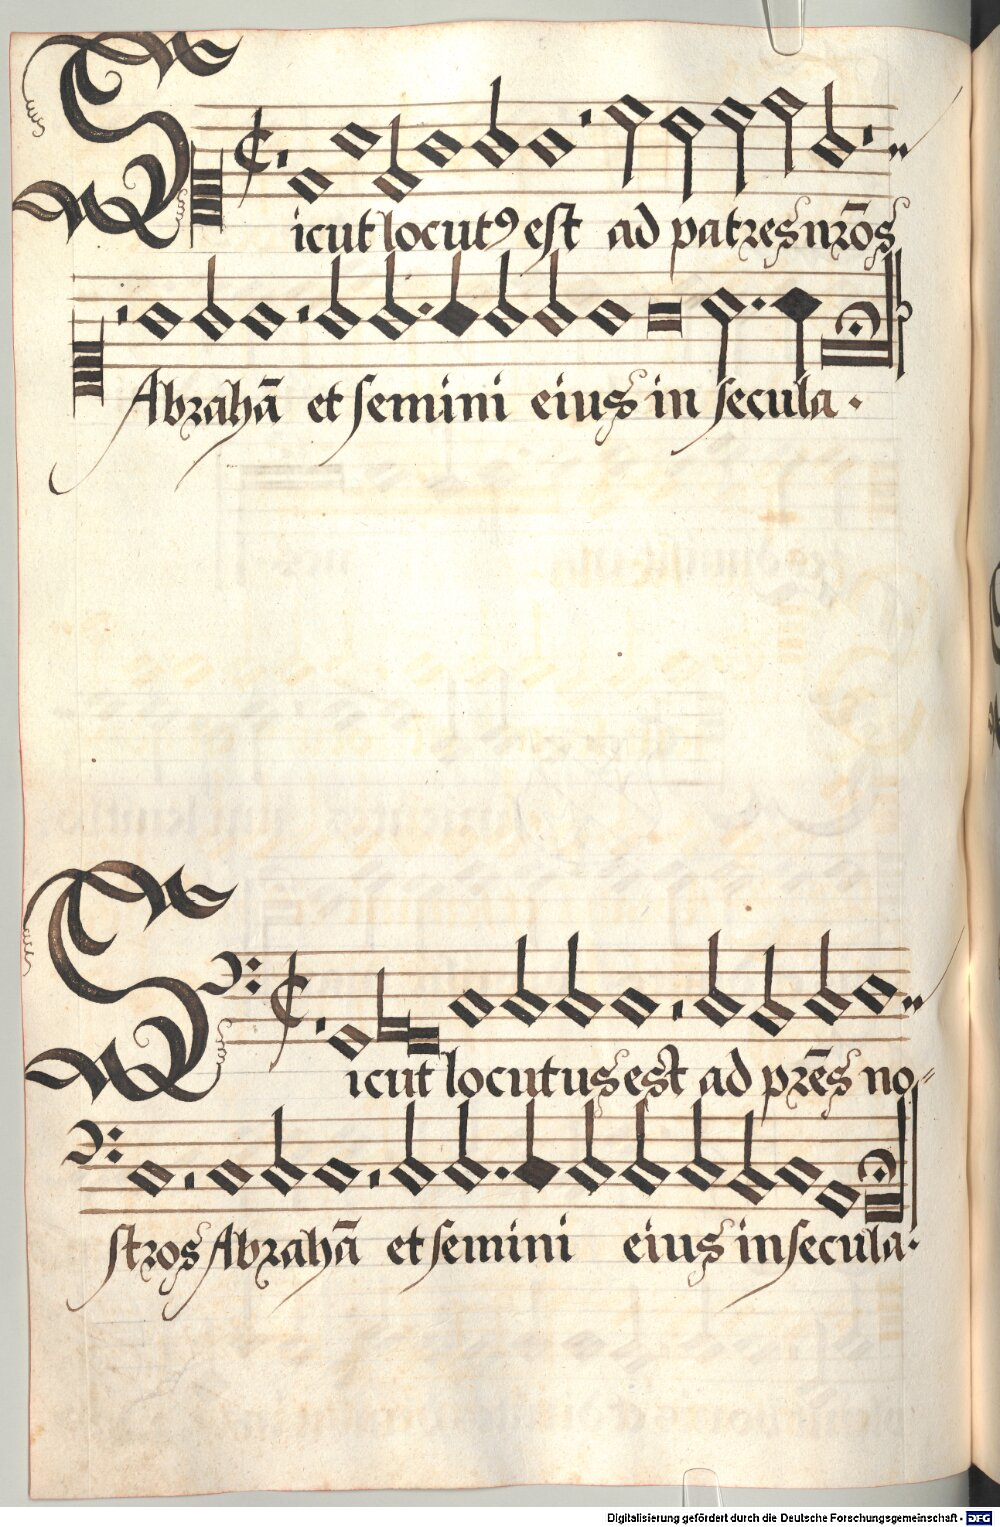 Sicut locutꝰ est ad patres nr̄os
Abrahā et semini eius in secula.
Sicut locutus est ad prēs no⸗
stros Abrahā et semini eius in secula.
Digitalisierung gefördert durch die Deutsche Forschungsgemeinschaft - DFG